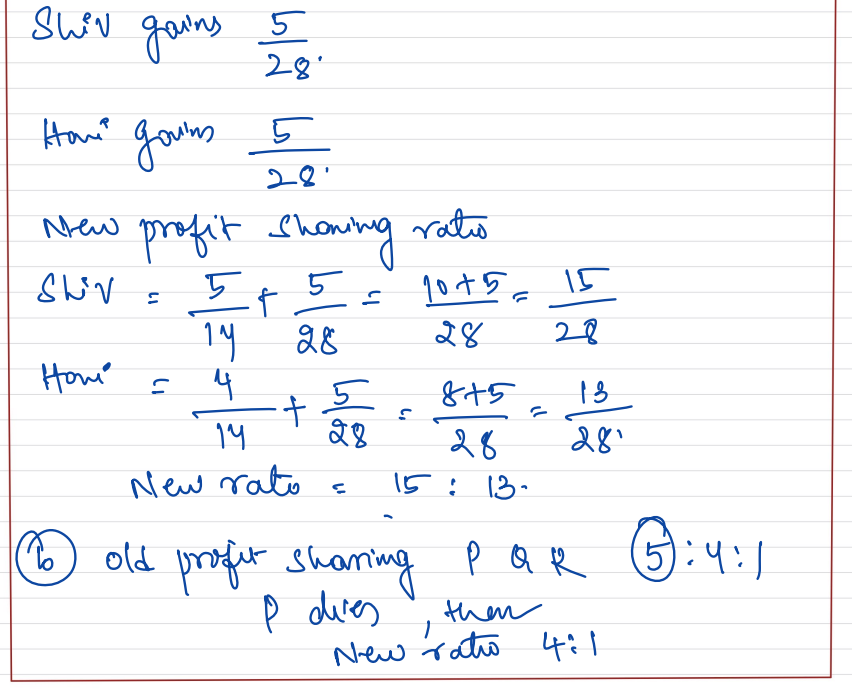 Shiv gains 5/28.
Hari gains 5/28.
New profit sharing ratio
Shiv = 5/14 + 5/28 = 10+5/28 = 15/28
Hari = 4/14 + 5/28 = 8+5/28 = 13/28.
New ratio = 15 : 13.
(b) old profit sharing P Q R 5:4:1
P dies, then
New ratio 4:1